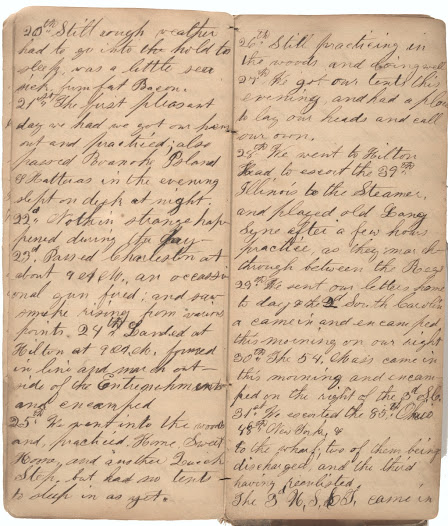 20th Still rough weather
had to go into the hold to
sleep, was a little sea
sick from fat Bacon.
21st The first pleasant
day we had we got our horns
out and practiced; also
passed Roanoke Island
& Hatteras in the evening
slept on deck at night.
22d Nothin strange hap-
pened during the day
23d Passed Charleston at
about 9 oclk, an occasi-
onal gun fired; and saw
smoke rising from various
points. 24th Landed at
Hilton at 9 oclk, formed
in line and march out-
side of the Entrenchments
and encamped
25th We went into the woods
and, practiced, Home, Sweet
Home, and another Quick
Step, but had no tent
to sleep in as yet.
26th Still practicing in
the woods and doing well
27th We got our tents this
evening, and had a place
to lay our heads and call
our own.
28th We went to Hilton
Head to escort the 39th
Illinois to the Steamer,
and played old Lang
Syne after a few hours
practice, as they march
through between the Reg
29th We sent our letters home
to day & the 2d South Carolin
a came in and encamped
this morning on our right
30th The 54, Mass came in
this morning and encam
ped on the right of the 3d S.C.
31st We escorted the 85th Ohio
48th New York, &
to the wharf; two of them being
discharged, and the third
having reenlisted,
The 3d U, S, C, T, came in